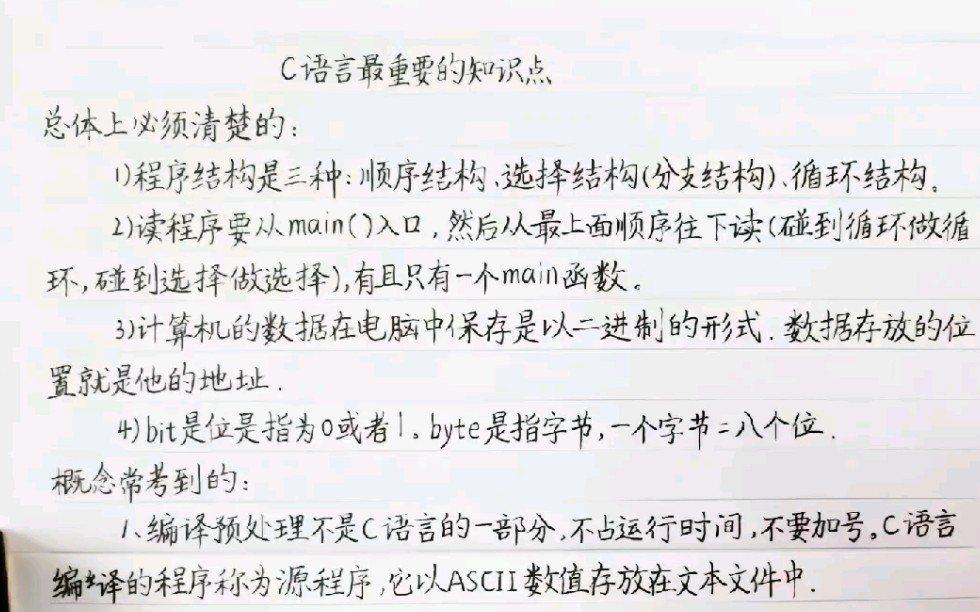 C语言最重要的知识点
总体上必须清楚的:
1)程序结构是三种:顺序结构、选择结构(分支结构)、循环结构。
2)读程序要从main()入口,然后从最上面顺序往下读(碰到循环做循
环,碰到选择做选择),有且只有一个main函数。
3)计算机的数据在电脑中保存是以二进制的形式.数据存放的位
置就是他的地址.
4)bit是位是指为0或者1。byte是指字节,一个字节=八个位.
概念常考到的:
1、编译预处理不是C语言的一部分,不占运行时间,不要加号。C语言
编译的程序称为源程序,它以ASCII数值存放在文本文件中.